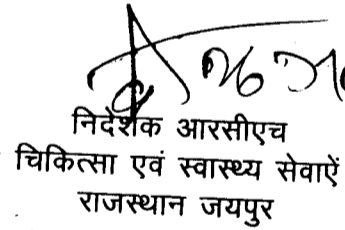 निदेशक आरसीएच
चिकित्सा एवं स्वास्थ्य सेवाऐं
राजस्थान जयपुर